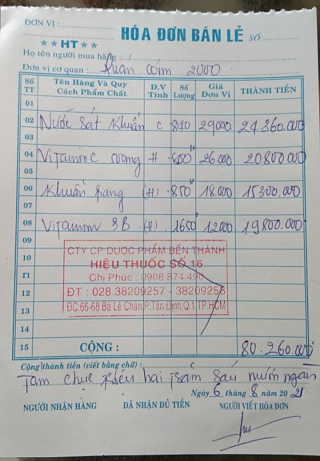 ĐƠN VỊ:
★★ HT ★★
HÓA ĐƠN BÁN LẺ Số:
Họ tên người mua hàng
Đơn vị cơ quan: Quán cơm 2000
Số TT Tên Hàng Và Quy Cách Phẩm Chất Đ.V Tính Số Lượng Giá Đơn Vị THÀNH TIỀN
01
02 Nước Sát Khuẩn C 840 29000 24.360.000
03
04 Vitamin C sương H 800 26000 20.800.000
05
06 Khuẩn trang (H) 850 18.000 15.300.000
07
08 Vitamin 3B (H) 1650 12000 19.800.000
09
10
11
12
13
14
CTY CP DƯỢC PHẨM BẾN THÀNH
HIỆU THUỐC SỐ 16
Chị Phúc: 0908.874.490
ĐT : 028.38209257 - 38209258
ĐC: 66-68 Bà Lê Chân, P.Tân Định, Q.1 TP.HCM
15 CỘNG : 80.260.000
Cộng thành tiền (viết bằng chữ):
Tám chục triệu hai trăm sáu mươi ngàn
Ngày 6 tháng 8 năm 2021
NGƯỜI NHẬN HÀNG ĐÃ NHẬN ĐỦ TIỀN NGƯỜI VIẾT HÓA ĐƠN